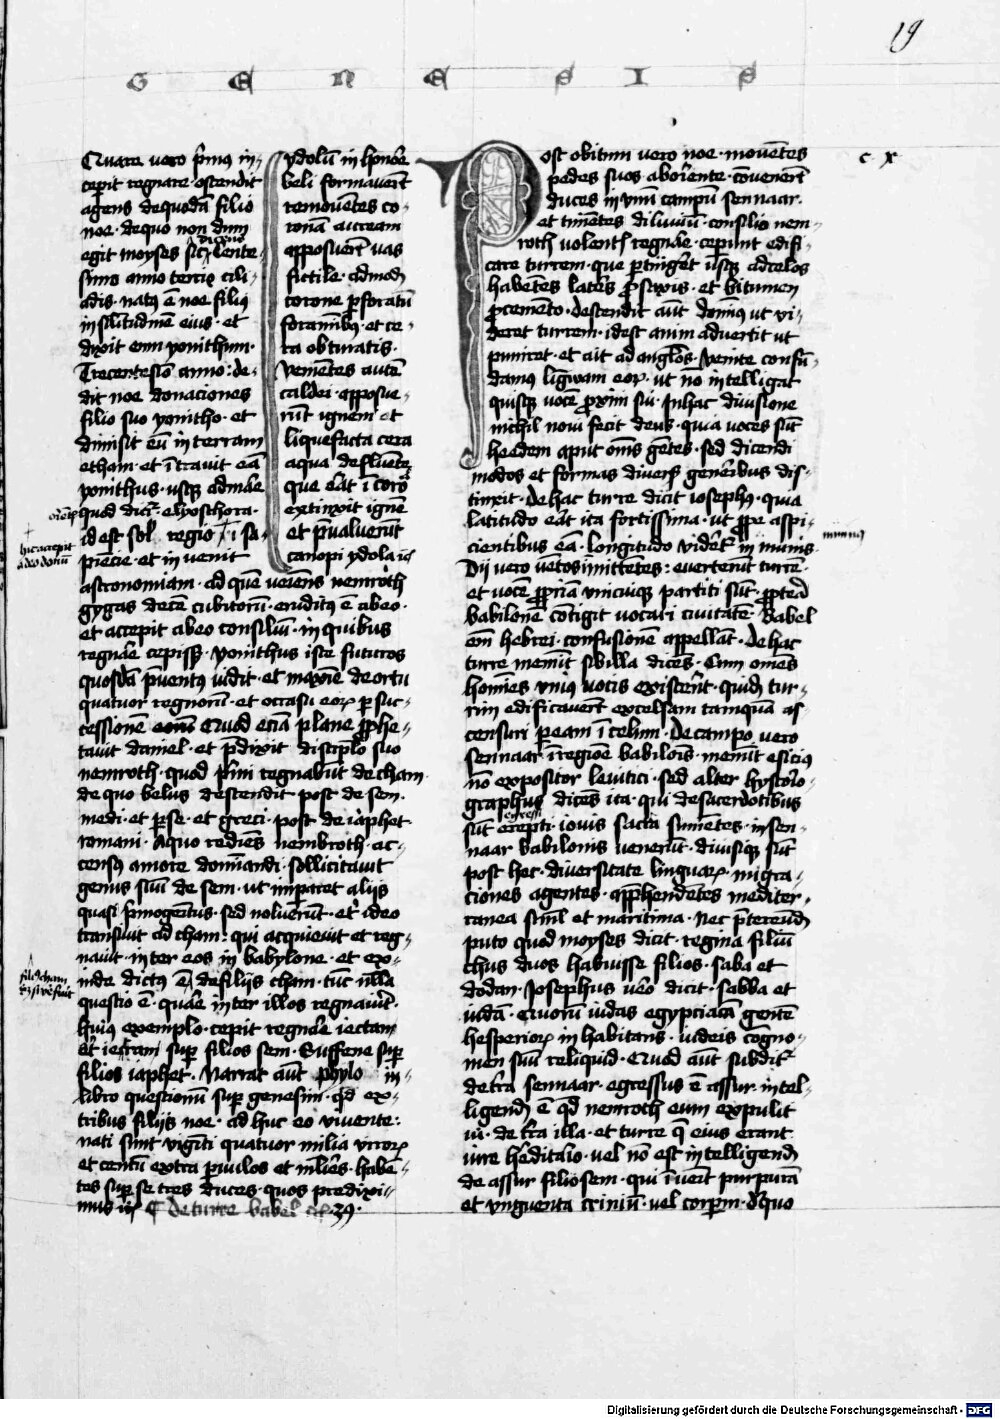 19
G E N E S I S
Quare vero pͥmꝯ in¬
cepit regnare · ostendit
agens de quodā filio
noe · de quo non dum
egit moyses sic dicens Cente¬
simo anno tercie cili¬
adis · natꝯ ē noe filiꝯ
in silitudinē eius · et
dixit eum yonithum ·
Trecentesio anno · de¬
dit noe donaciones
filio suo yonitho · et
dimisit eū in terram
etham · et ītrauit eā
yonithus · usqꝫ ad mare
quod dicit᷑ elyoschora ·
id est sol᷑ regio
piēcie · et in uenit
astronomiam · ad quē veniēns nemroth
gygas decē cubitorū · eruditꝯ ē ab eo ·
et accepit ab eo consiliū · in quibus
regnāre cepisset · yonithus iste futuros
quosdā ꝓuentꝯ uidit · et maxīe de ortu
quatuor regnorū · et occasu eoꝝ per suc¬
cessionē Quod eciā plane ꝓphe¬
tauit daniel · et p̄dixit disciplo suo
nemroth · quod pͥmi regnabūt de cham
de quo belus descendit post de sem ·
medi · et perse · et greci · post de iaphet
romani · A quo rediēs nembroth · ac¬
censꝯ amore dominandi · sollicitauit
genus suū de sem · ut imparet alijs
quasi pͥmogenitus · sed noluerūt · et ideo
transiuit ad cham · qui acquieuit et reg¬
nauit · inter eos in babylone · et ex¬
inde dictꝯ ē de filijs cham · tūc nulla
questio ē · quāre inter illos regnauit ·
huiꝯ exemplo · cepit regnāre iectam
super filios sem · Suffene super
filios iaphet · Narrat aūt phylo in
libro questionū super genesim · qd ex
tribus filijs noe · ad huc eo viuente ·
nati sunt viginti quatuor milia viroꝝ
et centū extra paruulos et mulieres · haben¬
tes super se tres duces · quos predixi¬
mus De turre babel 39 ·
ydolū in honore
beli formauerūt
remouētes co¬
ronā auream
apposuerūt uas
fictile · ad modū
corone perforatū
foraminibꝯ · et ce¬
ra obturatis ·
Venientes autē
caldei · apposue¬
rūt ignem et
liquefacta cera
aqua defluente
que erat ī corona
extinxit ignē
et p̄ualuerūt
canopi ydola
Post obitum vero noe · mouētes
pedes suos ab oriente · cōuenerūt
duces in vnū campū sennaar ·
et timētes diluuiū · consilio nem¬
roth volentis regnāre · ceperunt edifi¬
care turrem · que pertingeret usqꝫ ad celos
habentes lateres pro saxis · et bitumen
pro cemento · descendit aūt dominꝯ ut vi¬
deret turrem · id est anim aduertit ut
puniret · et ait ad angelos · Venite confū¬
damus linguam eoꝝ · ut nō intelligat
quisqꝫ vocē proximi sui · In hac diuisione
nichil noui fecit deus · quia voces sūt
heedem aput omēs gētes · sed dicendi
modos et formas diuersis generibus dis¬
tinxit · De hac turre dicit iosephꝯ · quia
latitudo erat ita fortissima · ut prope aspi¬
cientibus eā · longitudo videret᷑ in minus
Dij vero uētos īmittētes : euerterūt turrē ·
et vocē propriam vnicuiqꝫ partiti sūt · propterea
babilonē cōtigit vocari ciuitatē · Babel
enim hebrei · confusionē appellāt · De hac
turre meminit sibilla dicēs · Cum omēs
homīes vniꝯ uocis existerent · quidam tur¬
rim edificauerūt excelsam tamquā as¬
censuri per eam ī celum · De campo vero
sennaar ī regiōe babilonis · meminit esiciꝯ
nō expositor leuitici · sed alter hystorio¬
graphus dicēs ita · qui de sacerdotibus
sūt erepti · iouis sacra sumētes · in sen¬
naar babilonis venerūt · diuisiqꝫ sūt
post hec · diuersitate linguaꝝ · migra¬
ciones agentes · apprehendētes mediter¬
ranea simul et maritima · Nec p̄tereundū
puto quod moyses dicit · regma filiū
chus duos habuisse filios · saba et
dodan · Josephus uero dicit · sabba et
iudā · Quorū iudas egypciacā gentē
hesperioꝝ in habitans · iudeis cogno¬
men suū reliquid · Quod aūt subdit᷑
de terra sennaar · egressus ē assur · intel¬
ligendū ē qd nemroth eum expulit
ui · de terra illa · et turre que eius erant
iure hereditario · vel nō est intelligendū
de assur filio sem · qui īuenit purpurā
et vnguenta criniū · vel corporum · de quo
c x